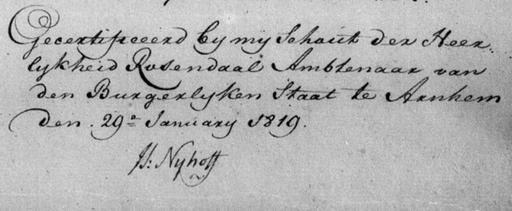 Gecertificeerd by my Schout der Heer-
lykheid Rosendaal Ambtenaar van
den Burgerlyken Staat te Arnhem
den 29e January 1819.
Is: Nyhoff